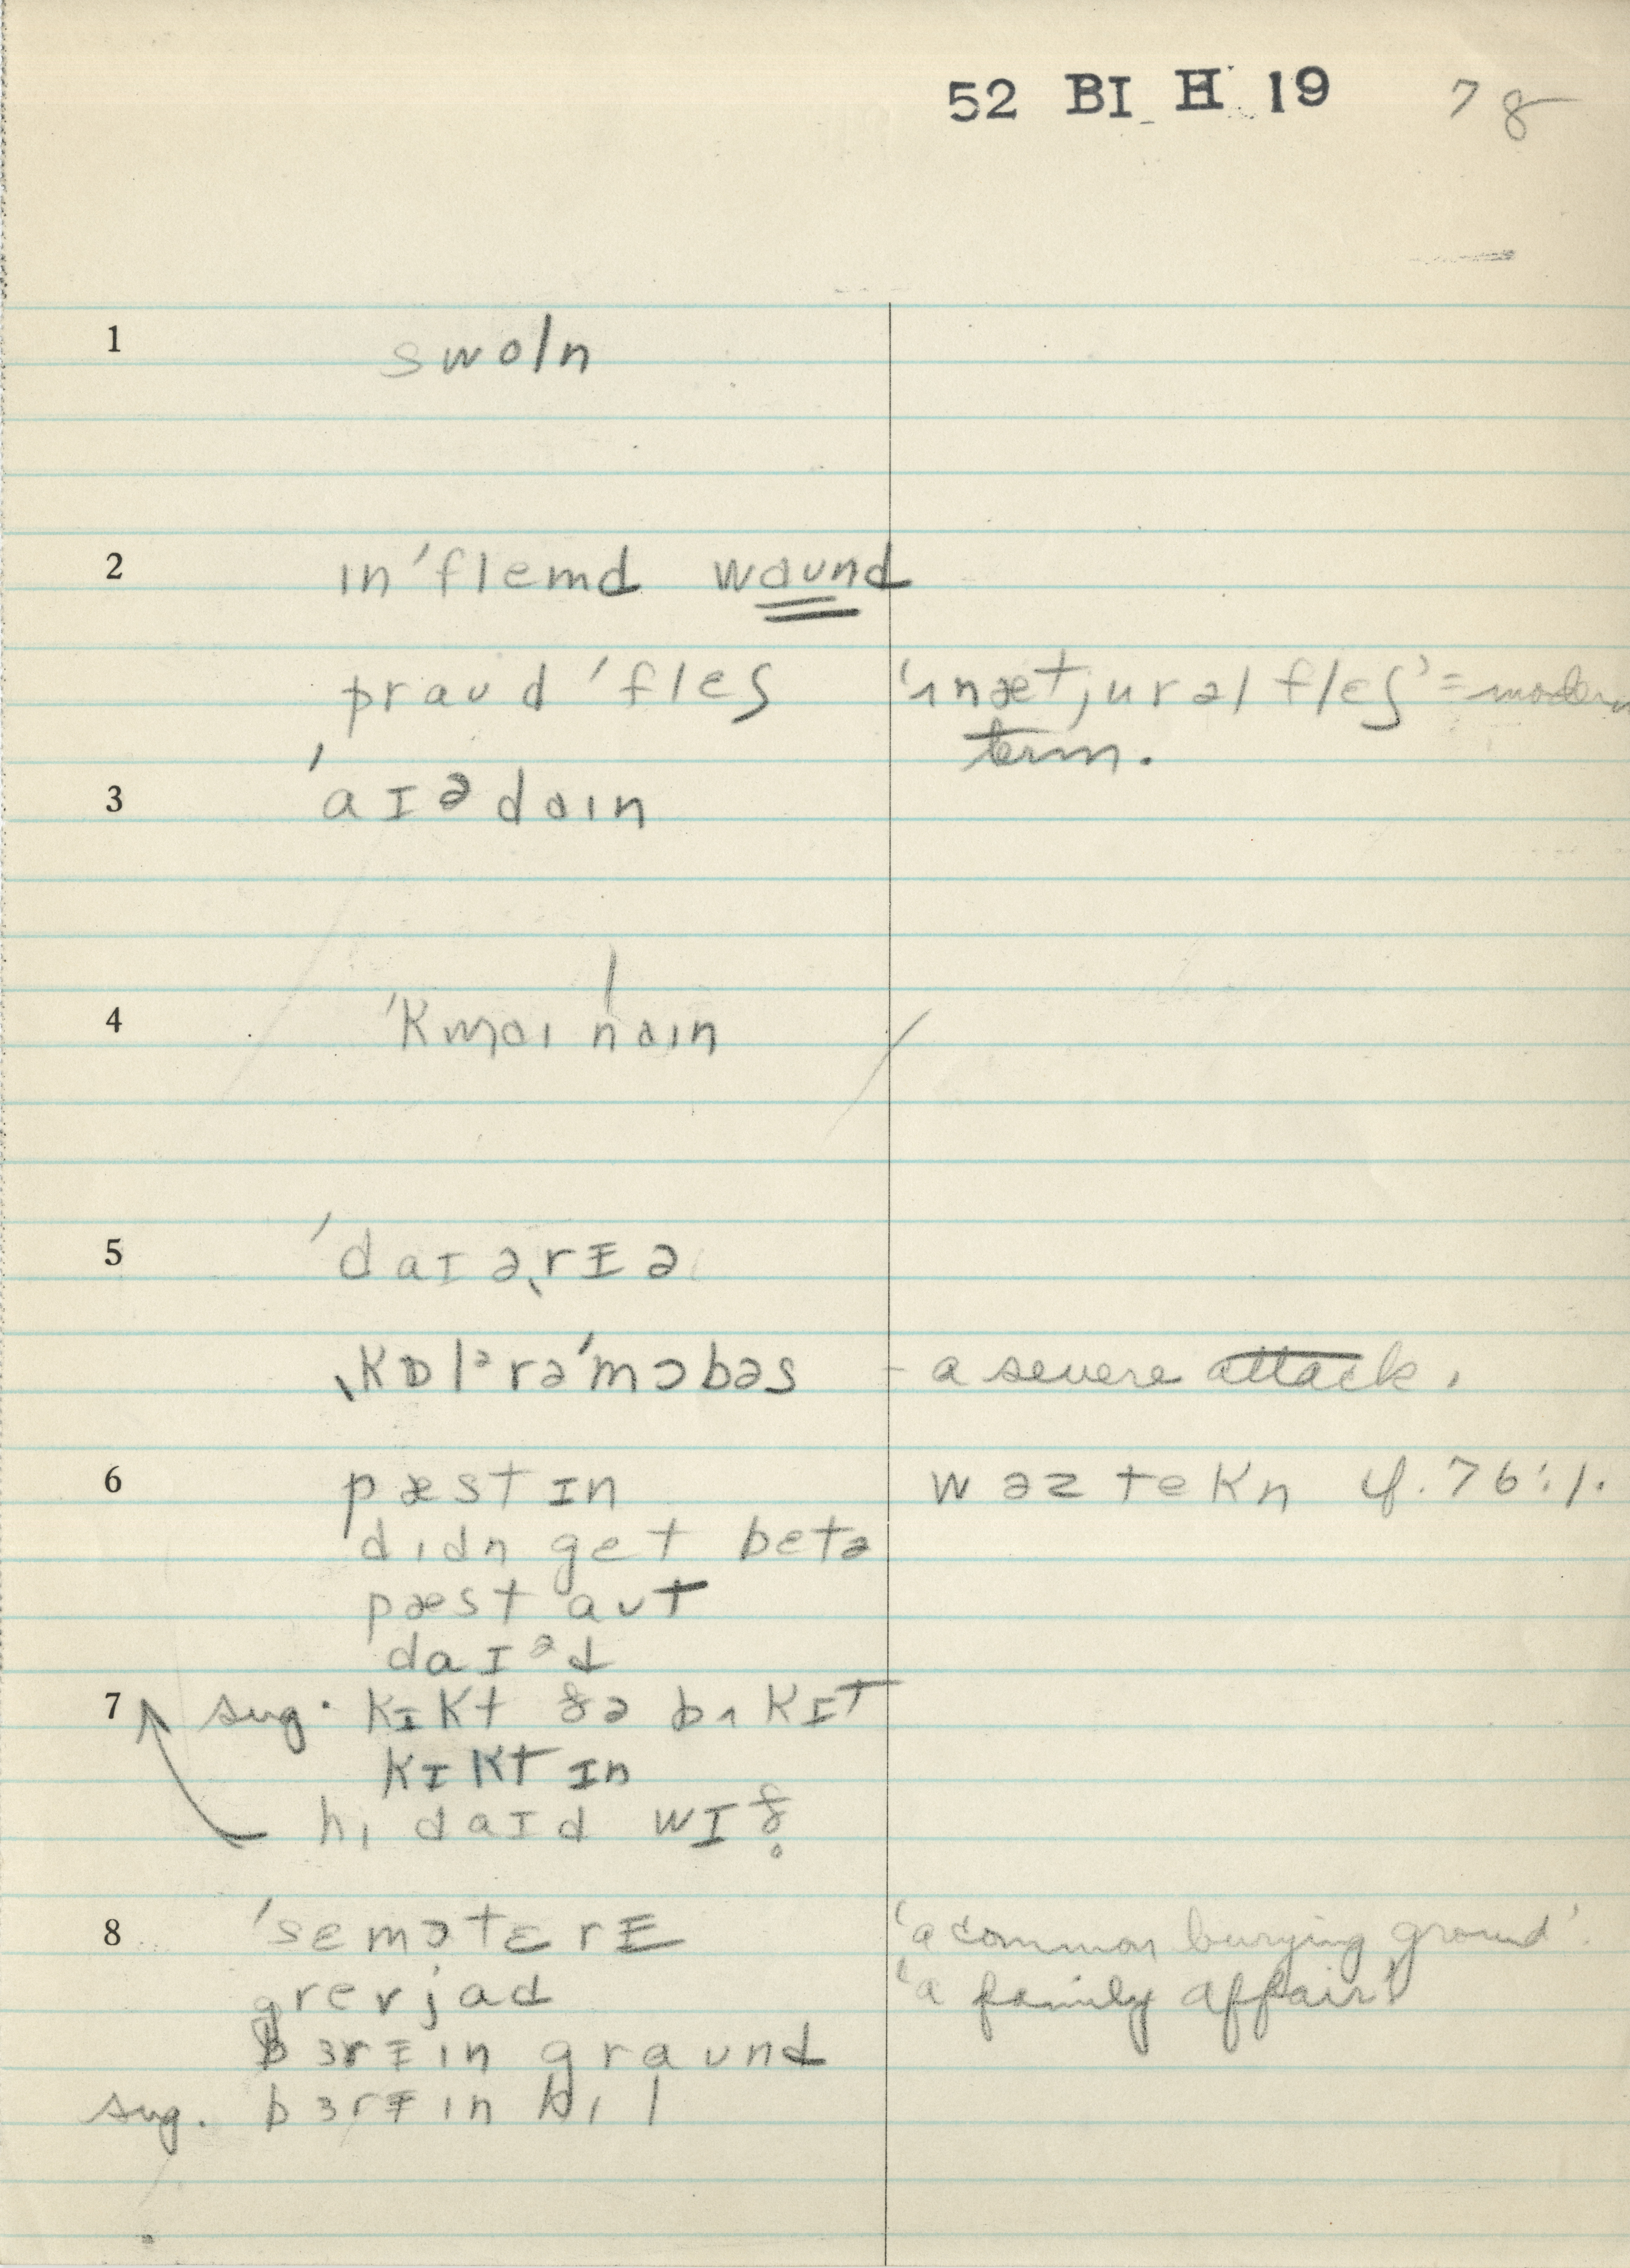 52 BI H 19 78
1 swoln
2 ɪnˈflemd waʊnd
praʊd ˈfleʃ 'ʌnætjurəl fleʃ' = modern
term.
3 ˈaɪədaɪn
4
5 ˈdaɪəˌrɨə
ˌkɒlᵊrəˈmɔbəs - a severe attack.
6 pæst ɪn wəz tekn cf. 76:1.
dɪdn get betə
pæst aʊt
daɪᵊd
7 sug. kɪkt ðə bʌkɪt
kɪkt ɪn
hi daɪd wɪð̥
8 ˈsɛmətɛrɨ 'a common burying ground'.
grevjad 'a family affair'
bɜrɨɪn graʊnd
sug. bɜrɨɪn hɪl